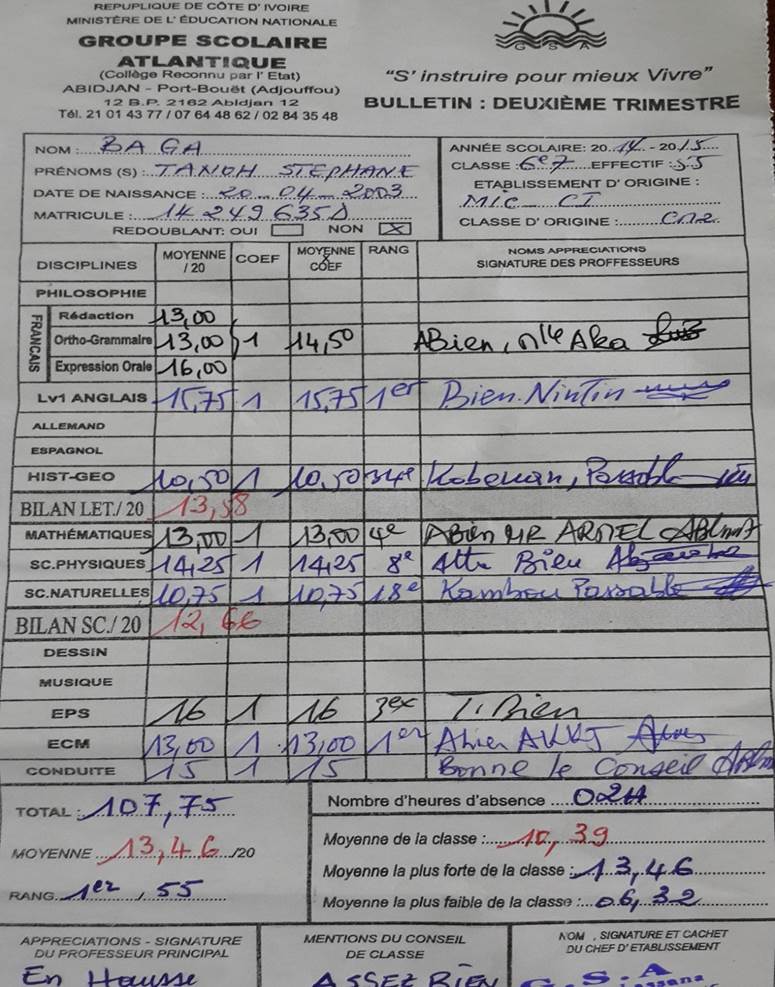 REPUPLIQUE DE CÔTE D' IVOIRE
MINISTÈRE DE L' ÉDUCATION NATIONALE
GROUPE SCOLAIRE
ATLANTIQUE
(Collège Reconnu par l' Etat)
ABIDJAN - Port-Bouët (Adjouffou)
12 B.P. 2162 Abidjan 12
Tél. 21 01 43 77 / 07 64 48 62 / 02 84 35 48
G S A
“S' instruire pour mieux Vivre”
BULLETIN : DEUXIÈME TRIMESTRE
NOM : BAGA
PRÉNOMS (S) : TANOH STEPHANE
DATE DE NAISSANCE : 20 - 04 - 2003
MATRICULE : 14 249 635 A
REDOUBLANT: OUI NON X
ANNÉE SCOLAIRE: 2014 - 2015
CLASSE : 6e7 EFFECTIF : 55
ETABLISSEMENT D' ORIGINE :
MIC - CI
CLASSE D' ORIGINE : CM2
DISCIPLINES MOYENNE / 20 COEF MOYENNE X COEF RANG NOMS APPRECIATIONS SIGNATURE DES PROFFESEURS
PHILOSOPHIE
FRANCAIS
Rédaction 13,00
Ortho-Grammaire 13,00 1 14,50 ABien, Mlle Aka
Expression Orale 16,00
Lv1 ANGLAIS 15,75 1 15,75 1er Bien Nintin
ALLEMAND
ESPAGNOL
HIST-GEO 10,50 1 10,50 34e Kobenan, Passable
BILAN LET./ 20 13,58
MATHÉMATIQUES 13,00 1 13,00 4e ABien MR ARMEL
SC.PHYSIQUES 14,25 1 14,25 8e Bien
SC.NATURELLES 10,75 1 10,75 18e Kambou Passable
BILAN SC./ 20 12,66
DESSIN
MUSIQUE
EPS 16 1 16 3ex T. Bien
ECM 13,00 1 13,00 1er ABien
CONDUITE 15 1 15 Bonne le Conseil
TOTAL : 107,75
MOYENNE 13,46 /20
RANG 1er / 55
Nombre d'heures d'absence 02H
Moyenne de la classe : 10,39
Moyenne la plus forte de la classe : 13,46
Moyenne la plus faible de la classe : 06,32
APPRECIATIONS - SIGNATURE
DU PROFESSEUR PRINCIPAL
En Hausse
MENTIONS DU CONSEIL
DE CLASSE
ASSEZ BIEN
NOM , SIGNATURE ET CACHET
DU CHEF D' ETABLISSEMENT
G.S.A